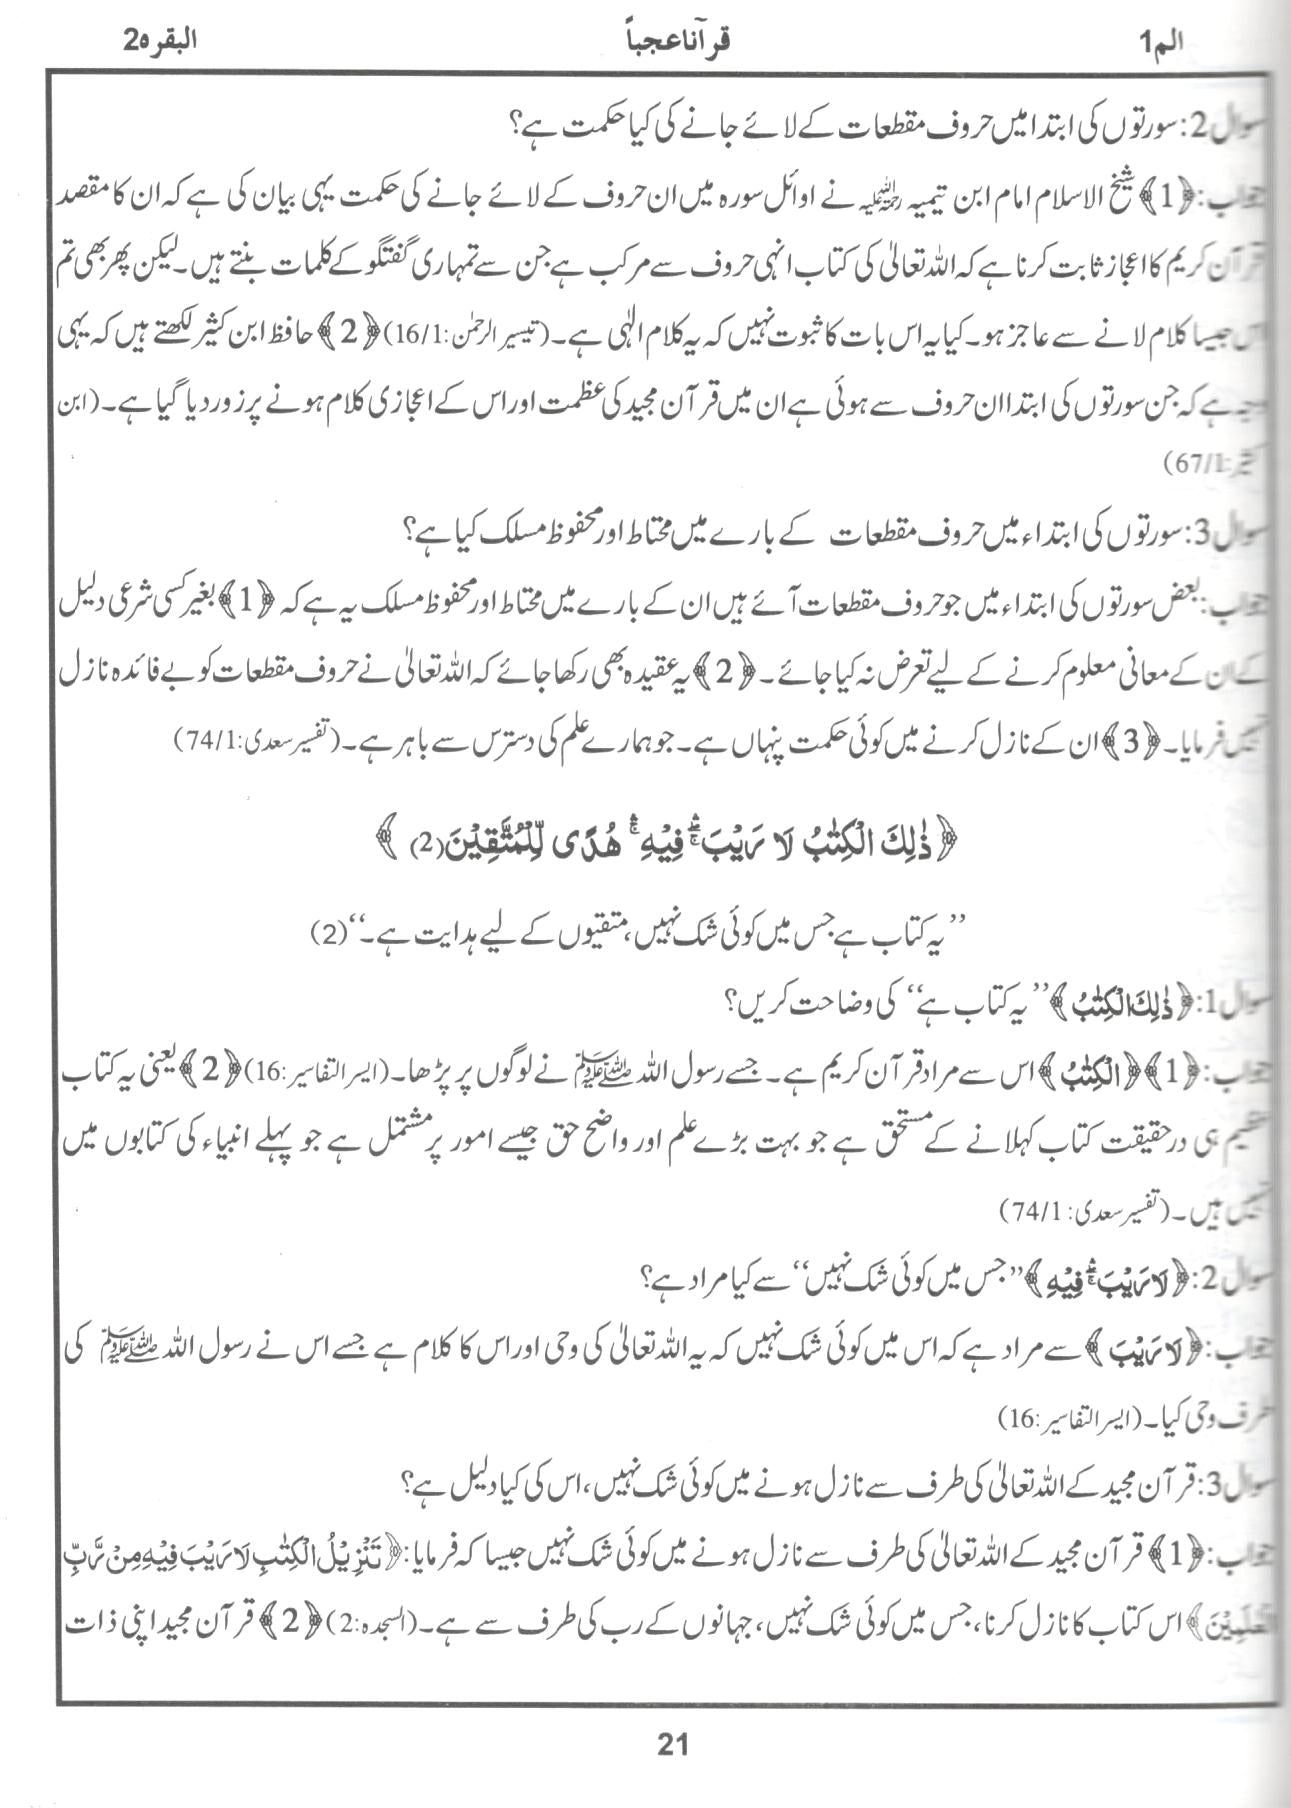 الم 1
قرآنا عجباً
البقرہ 2
سوال 2: سورتوں کی ابتدا میں حروف مقطعات کے لائے جانے کی کیا حکمت ہے؟
جواب: ﴿1﴾ شیخ الاسلام امام ابن تیمیہ رحمہ اللہ نے اوائل سورہ میں ان حروف کے لائے جانے کی حکمت یہی بیان کی ہے کہ ان کا مقصد
قرآن کریم کا اعجاز ثابت کرنا ہے کہ اللہ تعالیٰ کی کتاب انہی حروف سے مرکب ہے جن سے تمہاری گفتگو کے کلمات بنتے ہیں۔ لیکن پھر بھی تم
اس جیسا کلام لانے سے عاجز ہو۔ کیا یہ اس بات کا ثبوت نہیں کہ یہ کلام الٰہی ہے۔ (تیسیر الرحمٰن: 16/1) ﴿2﴾ حافظ ابن کثیر لکھتے ہیں کہ یہی
وجہ ہے کہ جن سورتوں کی ابتدا ان حروف سے ہوئی ہے ان میں قرآن مجید کی عظمت اور اس کے اعجازی کلام ہونے پر زور دیا گیا ہے۔ (ابن
کثیر: 67/1)
سوال 3: سورتوں کی ابتداء میں حروف مقطعات کے بارے میں محتاط اور محفوظ مسلک کیا ہے؟
جواب: بعض سورتوں کی ابتداء میں جو حروف مقطعات آئے ہیں ان کے بارے میں محتاط اور محفوظ مسلک یہ ہے کہ ﴿1﴾ بغیر کسی شرعی دلیل
کے ان کے معانی معلوم کرنے کے لیے تعرض نہ کیا جائے۔ ﴿2﴾ یہ عقیدہ بھی رکھا جائے کہ اللہ تعالیٰ نے حروف مقطعات کو بے فائدہ نازل
نہیں فرمایا۔ ﴿3﴾ ان کے نازل کرنے میں کوئی حکمت پنہاں ہے۔ جو ہمارے علم کی دسترس سے باہر ہے۔ (تفسیر سعدی: 74/1)
﴿ذٰلِكَ الْكِتٰبُ لَا رَيْبَ ۛ فِيْهِ ۛ هُدًى لِّلْمُتَّقِيْنَ (2)﴾
’’یہ کتاب ہے جس میں کوئی شک نہیں، متقیوں کے لیے ہدایت ہے۔‘‘ (2)
سوال 1: ﴿ذٰلِكَ الْكِتٰبُ﴾ ’’یہ کتاب ہے‘‘ کی وضاحت کریں؟
جواب: ﴿1﴾ ﴿الْكِتٰبُ﴾ اس سے مراد قرآن کریم ہے۔ جسے رسول اللہ ﷺ نے لوگوں پر پڑھا۔ (ایسر التفاسیر: 16) ﴿2﴾ یعنی یہ کتاب
عظیم ہی درحقیقت کتاب کہلانے کے مستحق ہے جو بہت بڑے علم اور واضح حق جیسے امور پر مشتمل ہے جو پہلے انبیاء کی کتابوں میں
نہیں ہیں۔ (تفسیر سعدی: 74/1)
سوال 2: ﴿لَا رَيْبَ ۛ فِيْهِ﴾ ’’جس میں کوئی شک نہیں‘‘ سے کیا مراد ہے؟
جواب: ﴿لَا رَيْبَ﴾ سے مراد ہے کہ اس میں کوئی شک نہیں کہ یہ اللہ تعالیٰ کی وحی اور اس کا کلام ہے جسے اس نے رسول اللہ ﷺ کی
طرف وحی کیا۔ (ایسر التفاسیر: 16)
سوال 3: قرآن مجید کے اللہ تعالیٰ کی طرف سے نازل ہونے میں کوئی شک نہیں، اس کی کیا دلیل ہے؟
جواب: ﴿1﴾ قرآن مجید کے اللہ تعالیٰ کی طرف سے نازل ہونے میں کوئی شک نہیں جیسا کہ فرمایا: ﴿تَنْزِيْلُ الْكِتٰبِ لَا رَيْبَ فِيْهِ مِنْ رَّبِّ
الْعٰلَمِيْنَ﴾ اس کتاب کا نازل کرنا، جس میں کوئی شک نہیں، جہانوں کے رب کی طرف سے ہے۔ (السجدہ: 2) ﴿2﴾ قرآن مجید اپنی ذات
21